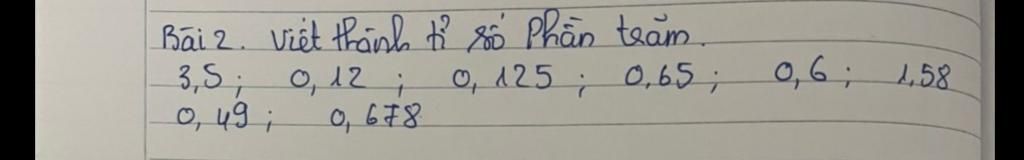 Bài 2. Viết thành tỉ số phần trăm.
3,5; 0,12; 0,125; 0,65; 0,6; 1,58
0,49; 0,678